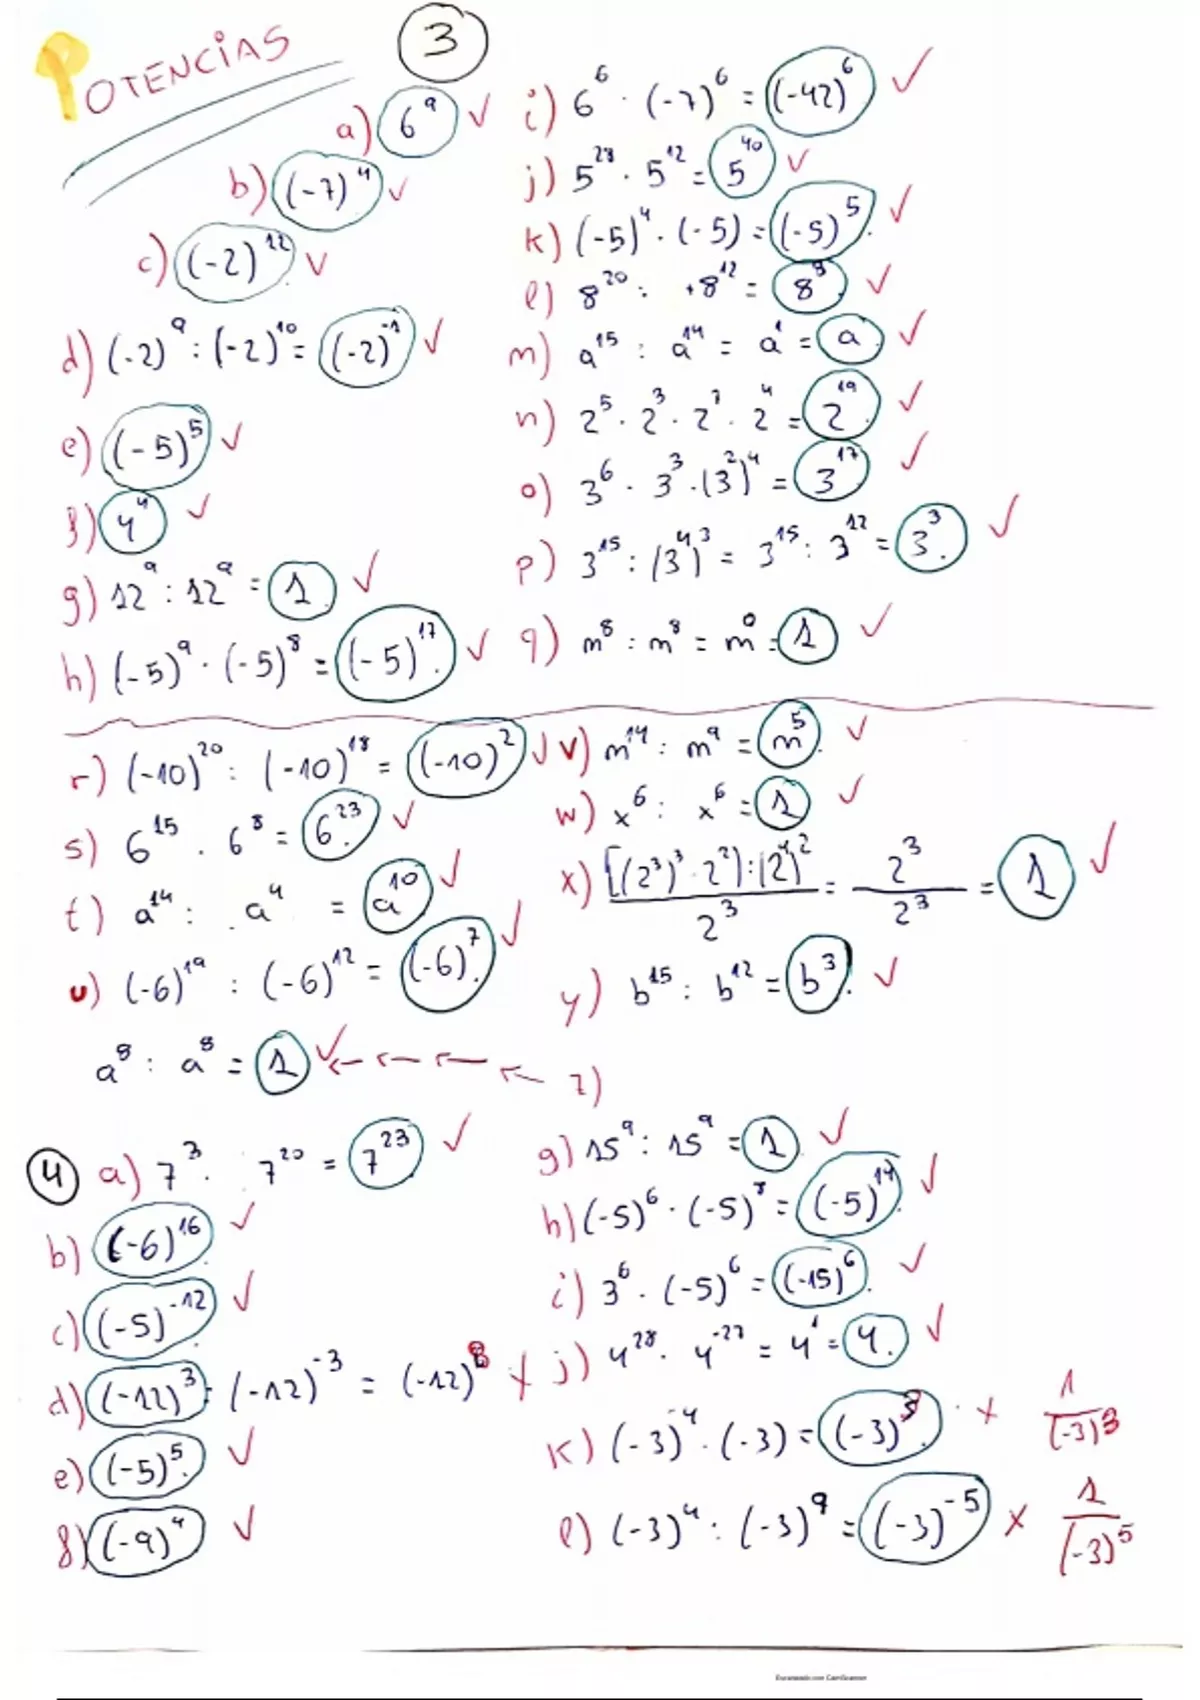 POTENCIAS
3
a) 6^9 ✓
b) (-7)^4 ✓
c) (-2)^12 ✓
d) (-2)^9 : (-2)^10 = (-2)^-1 ✓
e) (-5)^5 ✓
f) 4^4 ✓
g) 12^9 : 12^9 = 1 ✓
h) (-5)^9 · (-5)^8 = (-5)^17 ✓
i) 6^6 · (-7)^6 = (-42)^6 ✓
j) 5^28 · 5^12 = 5^40 ✓
k) (-5)^4 · (-5) = (-5)^5 ✓
l) 8^20 : +8^12 = 8^8 ✓
m) a^15 : a^14 = a^1 = a ✓
n) 2^5 · 2^3 · 2^7 · 2^4 = 2^19 ✓
o) 3^6 · 3^3 · (3^2)^4 = 3^17 ✓
p) 3^15 : (3^4)^3 = 3^15 : 3^12 = 3^3 ✓
q) m^8 : m^8 = m^0 = 1 ✓
r) (-10)^20 : (-10)^18 = (-10)^2 ✓
s) 6^15 · 6^8 = 6^23 ✓
t) a^14 : a^4 = a^10 ✓
u) (-6)^19 : (-6)^12 = (-6)^7 ✓
v) m^14 : m^9 = m^5 ✓
w) x^6 : x^6 = 1 ✓
x) [(2^3)^3 · 2^2) : (2^4)^2 / 2^3 = 2^3 / 2^3 = 1 ✓
y) b^15 : b^12 = b^3 ✓
a^8 : a^8 = 1 ✓ ← ← ← ← z)
4
a) 7^3 · 7^20 = 7^23 ✓
b) (-6)^16 ✓
c) (-5)^-12 ✓
d) (-12)^3 : (-12)^-3 = (-12)^6 x
e) (-5)^5 ✓
f) (-9)^4 ✓
g) 15^9 : 15^9 = 1 ✓
h) (-5)^6 · (-5)^8 = (-5)^14 ✓
i) 3^6 · (-5)^6 = (-15)^6 ✓
j) 4^28 · 4^-27 = 4^1 = 4 ✓
k) (-3)^-4 · (-3) = (-3)^3 x 1/(-3)^3
l) (-3)^4 : (-3)^9 = (-3)^-5 x 1/(-3)^5
Escaneado con CamScanner